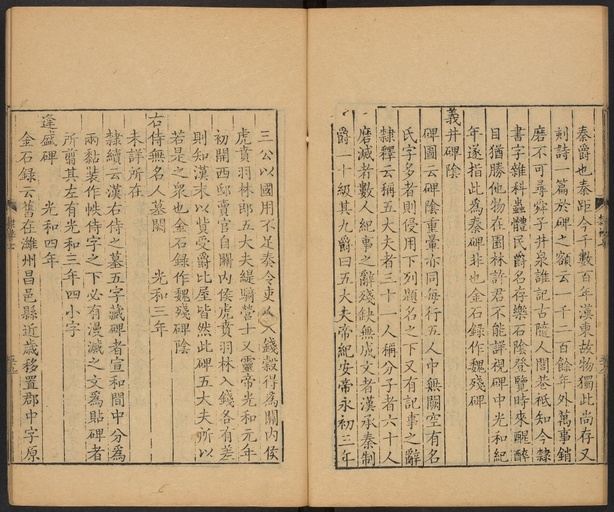 秦爵也秦距今千數百年漢東故物獨此尚存又
刻詩一篇於碑之額云一千二百餘年外萬事銷
磨不可尋舜子井泉誰記古隨人閭巷祇知今隸
書字雜科蟲體民爵名存樂石陰登覽時來醒醉
目猶勝他物在園林許君不能譯視碑中光和紀
年遂指此為秦碑非也金石錄作魏殘碑
義井碑陰
碑圖云碑陰重暈亦同每行五人中無闕空有名
氏字多者則侵用下列題名之下又有記事之辭
隸釋云稱五大夫者三十一人稱分子者六十人
磨滅者數人紀事之辭殘缺無成文者漢承秦制
爵一十級其九爵曰五大夫帝紀安帝永初三年
三公以國用不足奏令吏人入錢穀得為關內侯
虎賁羽林郎五大夫緹騎營士又靈帝光和元年
初開西邸賣官自關內侯虎賁羽林入錢各有差
則知漢末以貲受爵比屋皆然此碑五大夫所以
若是之眾也金石錄作魏殘碑陰
右侍無名人墓闕 光和三年
未詳所在
隸續云漢右侍之墓五字藏碑者宣和間中分為
兩黏裝作帙侍字之下必有漫滅之文為貼碑者
所翦其左有光和三年四小字
逢盛碑 光和四年
金石錄云舊在濰州昌邑縣近歲移置郡中字原